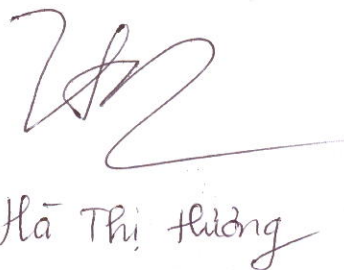 Hà Thị Hường